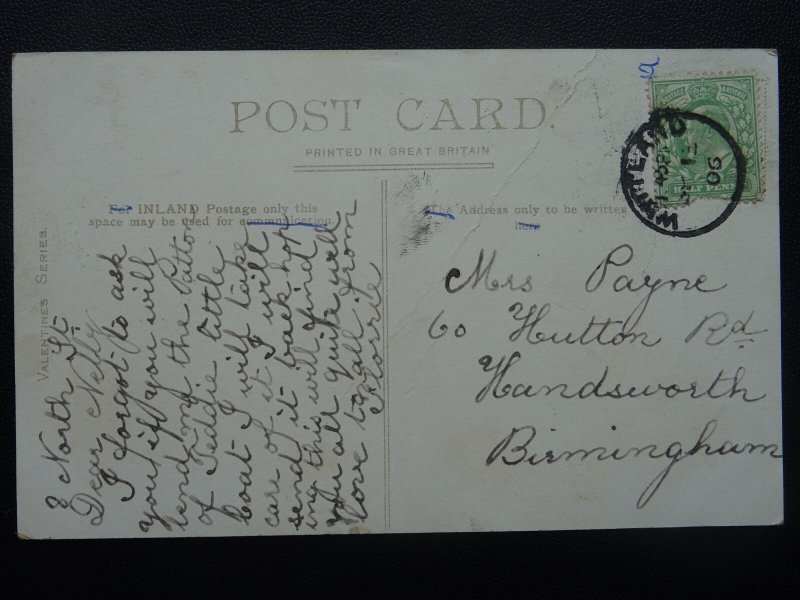 POST CARD.
PRINTED IN GREAT BRITAIN
For INLAND Postage only this
space may be used for communication.
The Address only to be written
here
VALENTINE'S SERIES.
8 North St
Dear Nelly
I forgot to ask
you if you will
lend me the Patton
of Teddie little
Coat I will take
care of it I will
send it back hop
ing this will find
you all quite well
love to all from
Florrie
Mrs Payne
60 Hutton Rd
Handsworth
Birmingham
WHITLAND
06